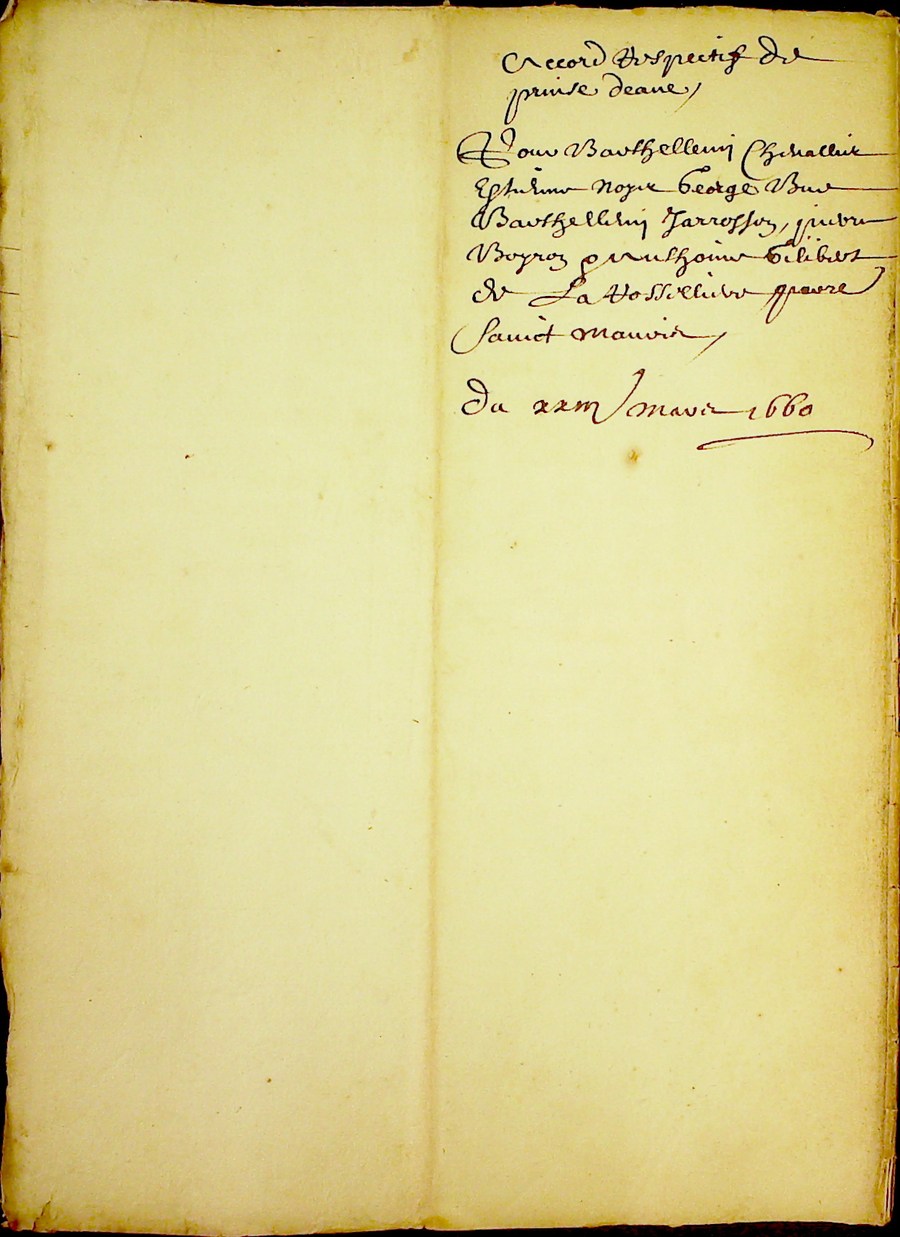 Accord Respectif de
prinse deaue,
Pour Barthellemi Chevallier
Estienne Noyer George Bue
Barthellemi Jarrosson, pierre
Boyron & Anthoine Gilibert
de La Rossilliere
Sainct Maurice,
Du mars 1660